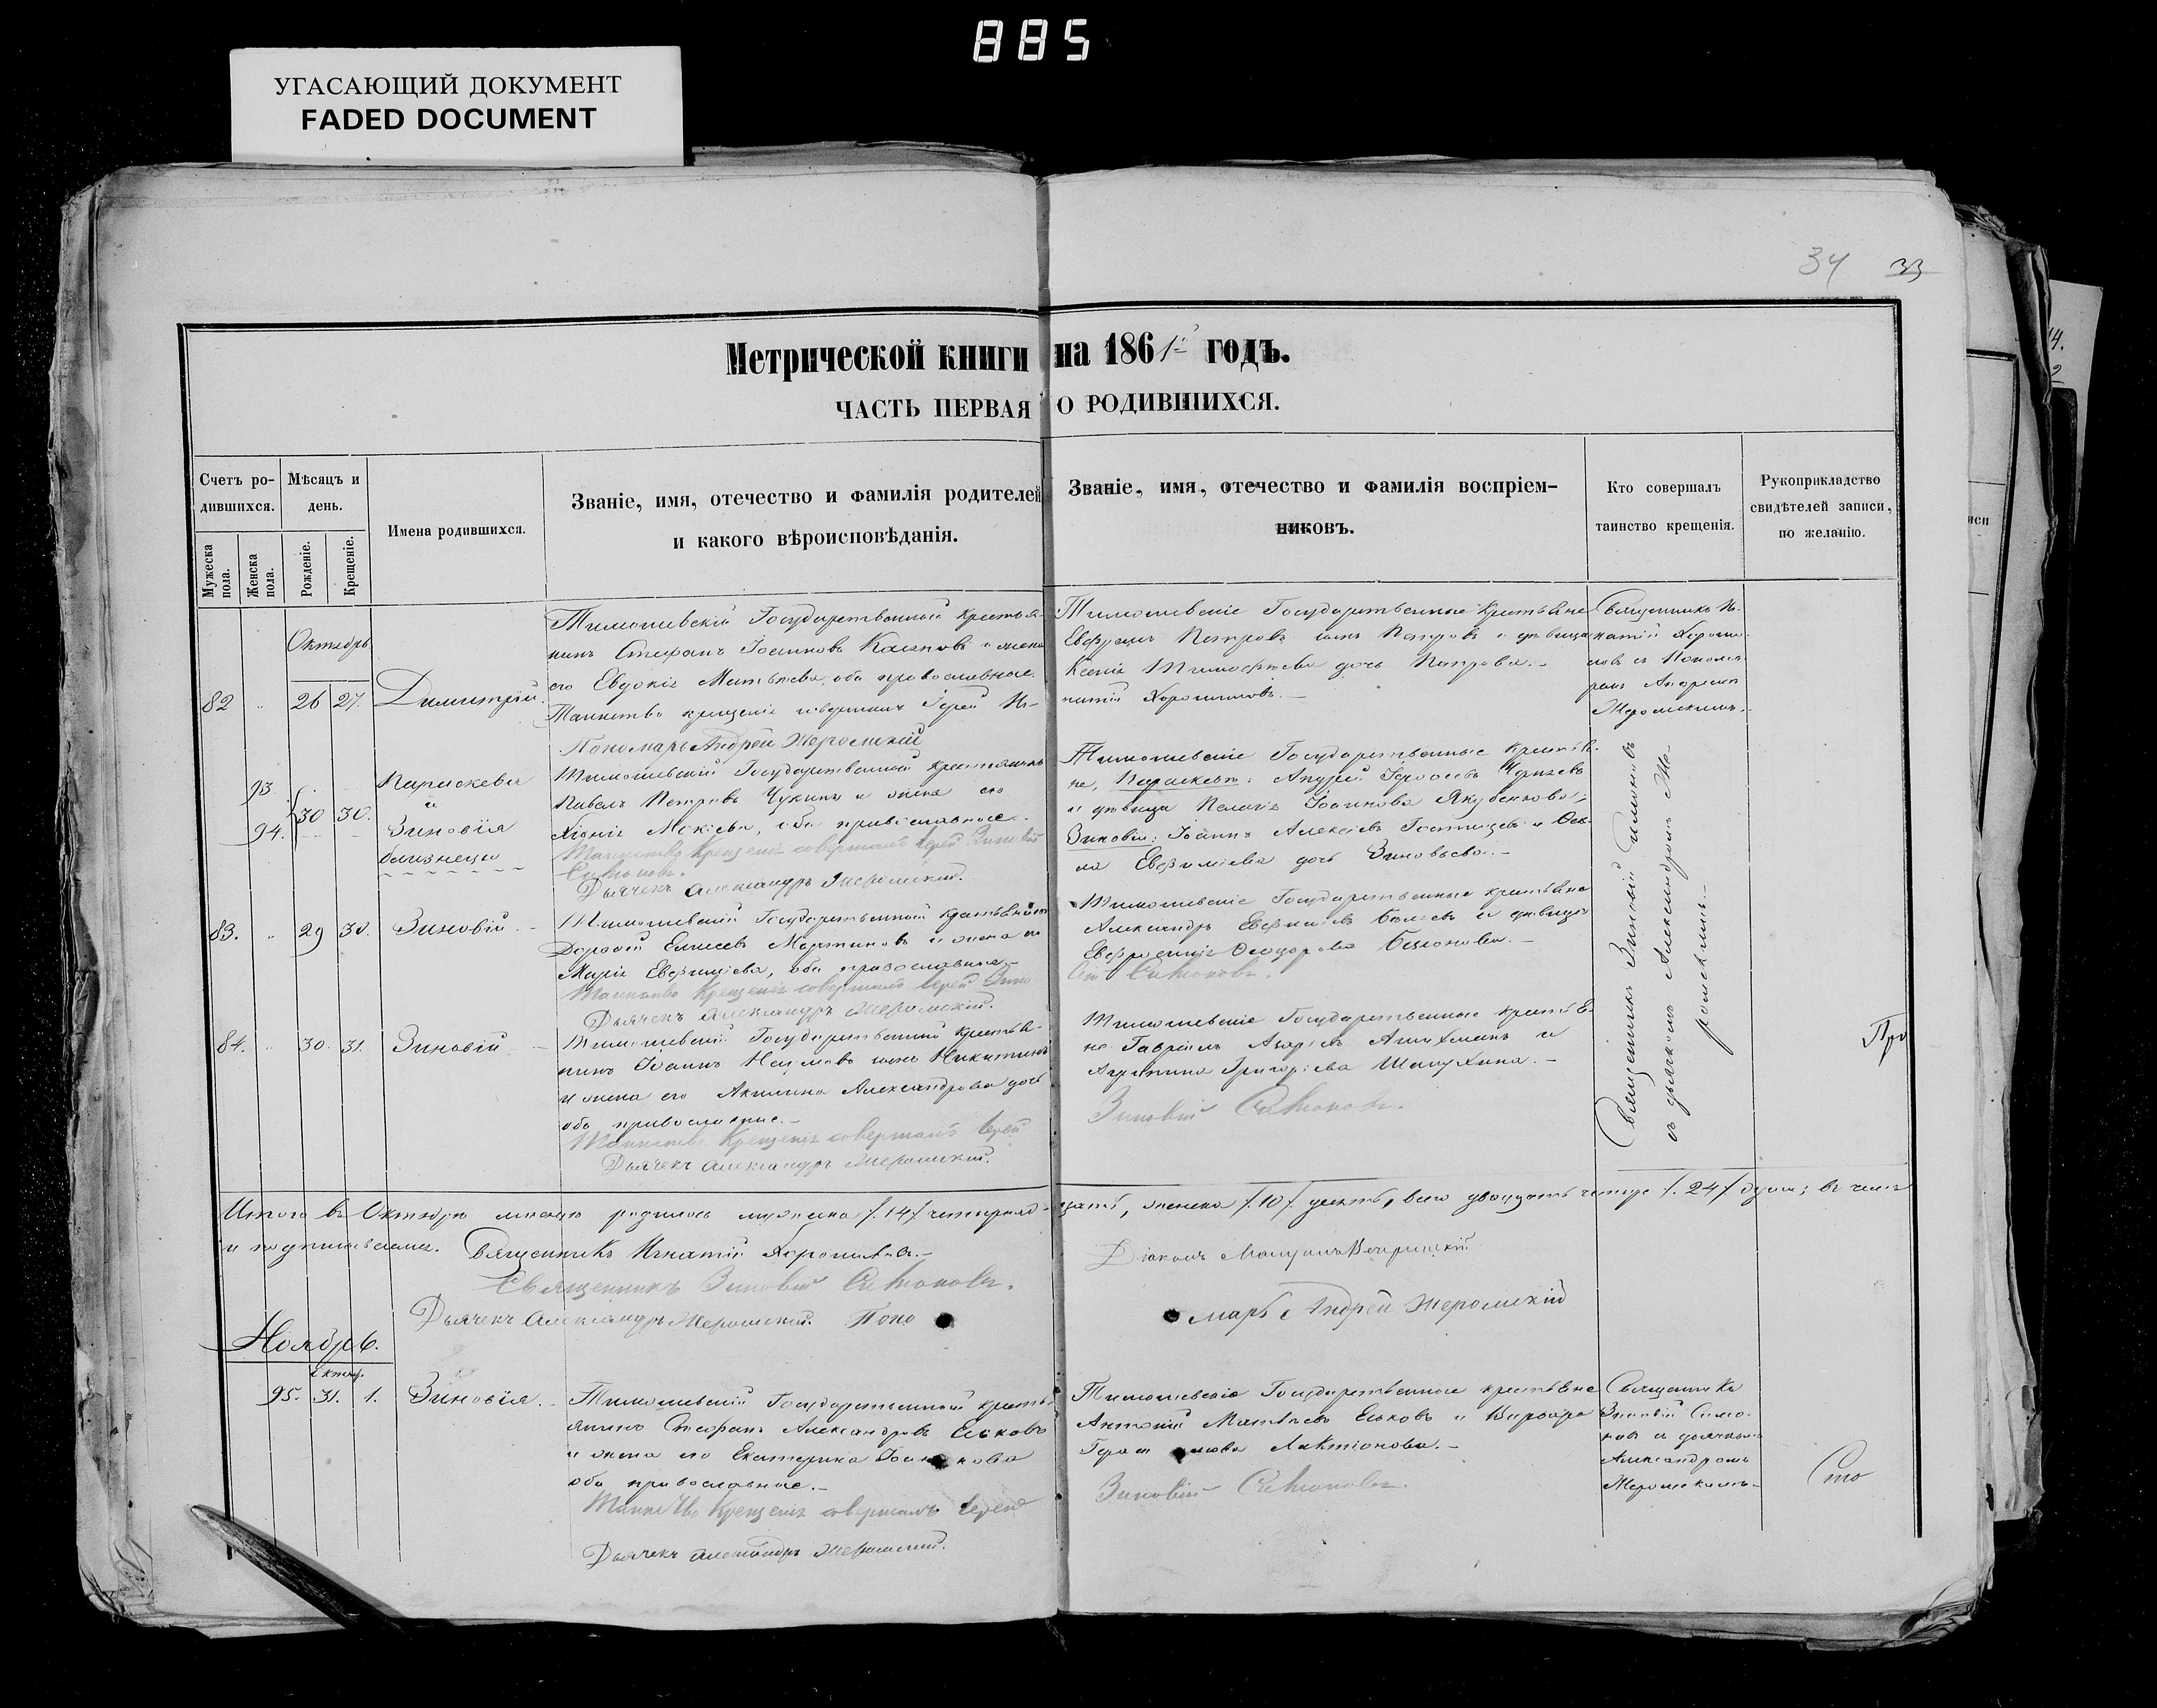 885
УГАСАЮЩИЙ ДОКУМЕНТ
FADED DOCUMENT
34 33
Метрической книги на 1861й годъ.
ЧАСТЬ ПЕРВАЯ О РОДИВШИХСЯ.
Счетъ ро-
дившихся.
Мужеска
пола.
Женска
пола.
Мѣсяцъ и
день.
Рожденіе.
Крещеніе.
Имена родившихся.
Званіе, имя, отечество и фамилія родителей
и какого вѣроисповѣданія.
Званіе, имя, отечество и фамилія воспріем-
никовъ.
Кто совершалъ
таинство крещенія.
Рукоприкладство
свидѣтелей записи,
по желанію.
Октябрь
82 " 26 27. Димитрій.
Тимошевскій Государственный крестья-
нинъ Стефанъ Іоанновъ и жена
его Евдокія Матѳѣева, оба православные.
Таинство крещенія совершалъ Іерей Иг-
Пономарь Андрей Жеромскій
Тимошевскіе Государственные крестьяне
Петровъ сынъ Петровъ и дѣвица
Ксенія Тимоѳѣева дочь Петрова.-
натій Хорошиловъ.-
Священникъ Иг-
натій Хороши-
ловъ съ Понома-
ремъ Андреемъ
Жеромскимъ.
93
94. 30 30.
Параскева
и
Зиновія
близнецы
Тимошевскій Государственный крестьянинъ
Павелъ Петровъ Чукинъ и жена его
Хіонія Мокіева, оба православные.
Таинство Крещенія совершалъ Іерей Зиновій
Симоновъ.
Дьячекъ Александръ Жеромскій.
Тимошевскіе Государственные крестья-
не, Параскевы: Андрей
и дѣвица Пелагія Іоаннова Якубенкова;
Зиновіи: Іоаннъ Алексѣевъ и Ѳек-
ла Евфиміева дочь Зиновьева.-
83. " 29 30. Зиновій.
Тимошевскій Государственный крестьянинъ
Дороѳей Елисеевъ Мартиновъ и жена его
Марія Евфиміева, оба православные.-
Таинство Крещенія совершалъ Іерей Зино
Дьячекъ Александръ Жеромскій.
Тимошевскіе Государственные крестьяне
Александръ Евфиміевъ и дѣвица
Евфросинія Ѳеодорова.-
вій Симоновъ.
84. " 30. 31. Зиновій
Тимошевскій Государственный крестья-
нинъ Іоаннъ Наумовъ сынъ Никитинъ
и жена его Акилина Александрова дочь
оба православные.-
Таинство Крещенія совершалъ Іерей
Дьячекъ Александръ Жеромскій.
Тимошевскіе Государственные крестья-
не Гавріилъ Азаріевъ и
Агрипина Григоріева Шапухина.-
Зиновій Симоновъ.
Священникъ Зиновій Симоновъ
съ дьячкомъ Александромъ Же-
ромскимъ.-
При
Итого въ Октябрѣ мѣсяцѣ родилось мужеска /.14/ четырнад-цать, женска /.10/ десять, всего двадцать четыре /.24/ души; въ чемъ
и подписываемся. Священникъ Игнатій Хорошиловъ.-
Діаконъ
Священникъ Зиновій Симоновъ.
Дьячекъ Александръ Жеромскій. Поно
марь Андрей Жеромскій
Ноябрь.
Октяб.
95. 31. 1. Зиновія.-
Тимошевскій Государственный кресть-
янинъ Стефанъ Александровъ Еськовъ
и жена его Екатерина Іоаннова
оба православные.-
Таинство Крещенія совершалъ Іерей
Дьячекъ Александръ Жеромскій.
Тимошевскіе Государственные крестьяне
Антоній Матѳѣевъ Еськовъ и Варвара
Герасимова Лактіонова.-
Зиновій Симоновъ.
Священникъ
Зиновій Симо-
новъ съ дьячкомъ
Александромъ
Жеромскимъ.-
Сто